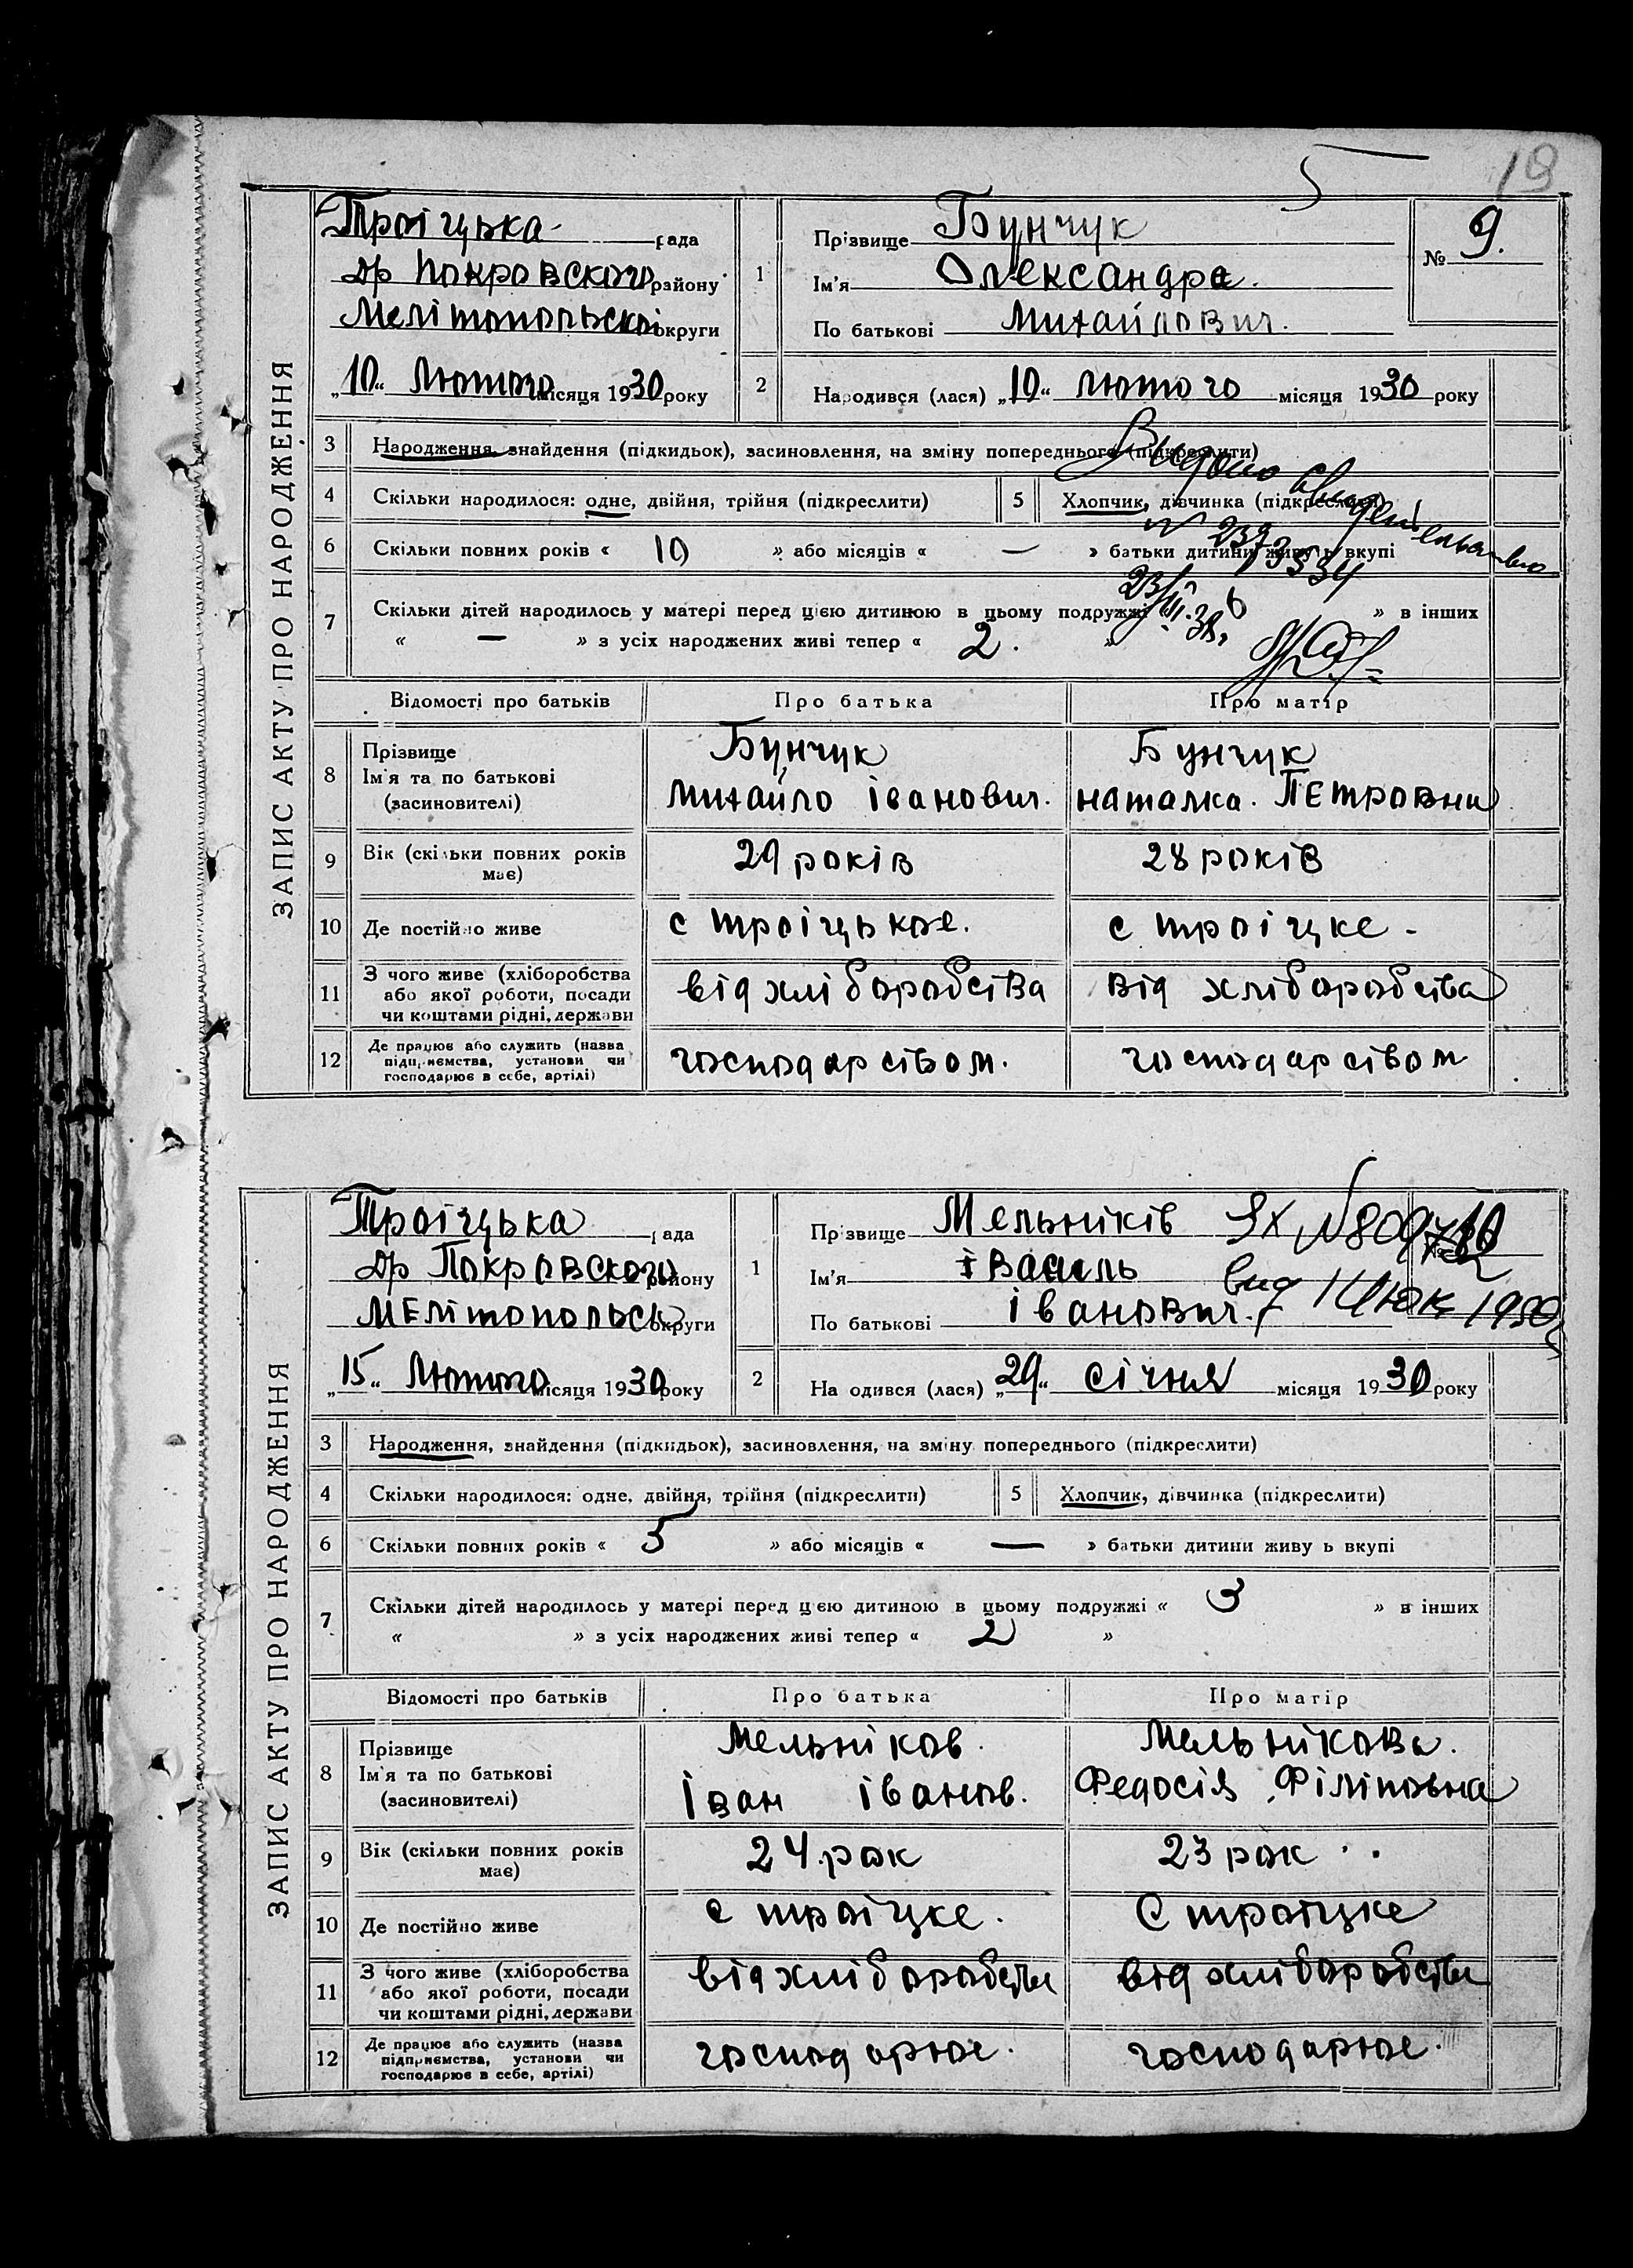 19
ЗАПИС АКТУ ПРО НАРОДЖЕННЯ
Троіцька рада
Др Покровского району
Мелітопольскоі округи
„10“ Лютого місяця 1930 року
1
Прізвище Бунчук
Ім'я Олександра.
По батькові Михайлович.
№ 9.
2
Народився (лася) „10“ лютого місяця 1930 року
3 Народження, знайдення (підкидьок), засиновлення, на зміну попереднього (підкреслити)
4 Скільки народилося: одне, двійня, трійня (підкреслити)
5 Хлопчик, дівчинка (підкреслити)
6 Скільки повних років « 10 » або місяців « — » батьки дитини живуть вкупі
7 Скільки дітей народилось у матері перед цією дитиною в цьому подружжі « 6 » в інших
« — » з усіх народжених живі тепер « 2. »
Видано
Відомості про батьків Про батька Про матір
8 Прізвище
Ім'я та по батькові
(засиновителі)
Бунчук
Михайло Іванович.
Бунчук
Наталка. Петровни
9 Вік (скільки повних років має) 29 років 28 років
10 Де постійно живе с троіцькое. с троіцке -
11 З чого живе (хліборобства
або якої роботи, посади
чи коштами рідні, держави
від хліборобства від хліборобства
12 Де працює або служить (назва
підприємства, установи чи
господарює в себе, артілі)
господарством. господарством
ЗАПИС АКТУ ПРО НАРОДЖЕННЯ
Троіцька рада
Др Покровского району
Мелітопольсь округи
„15“ Лютого місяця 1930 року
1
Прізвище Мельніків
Ім'я Івасиль
По батькові Іванович.
№ 10
2
Народився (лася) „29“ січня місяця 1930 року
3 Народження, знайдення (підкидьок), засиновлення, на зміну попереднього (підкреслити)
4 Скільки народилося: одне, двійня, трійня (підкреслити)
5 Хлопчик, дівчинка (підкреслити)
6 Скільки повних років « 5 » або місяців « — » батьки дитини живуть вкупі
7 Скільки дітей народилось у матері перед цією дитиною в цьому подружжі « 3 » в інших
« » з усіх народжених живі тепер « 2 »
Відомості про батьків Про батька Про матір
8 Прізвище
Ім'я та по батькові
(засиновителі)
Мельніков.
Іван Іванов.
Мельнікова.
Федосія Філіповна
9 Вік (скільки повних років має) 24 рок 23 рок
10 Де постійно живе с троіцке. С троіцке
11 З чого живе (хліборобства
або якої роботи, посади
чи коштами рідні, держави
від хліборобств від хліборобств
12 Де працює або служить (назва
підприємства, установи чи
господарює в себе, артілі)
господарює. господарює.